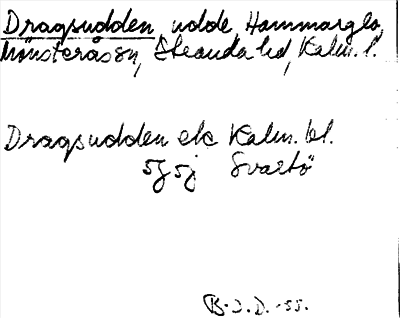 Dragsudden, udde, Hammarglo,
Mönsterås sn, Stranda hd, Kalm. l.
Dragsudden ek Kalm. bl.
5f 5j Svartö
B.J.D. -55.